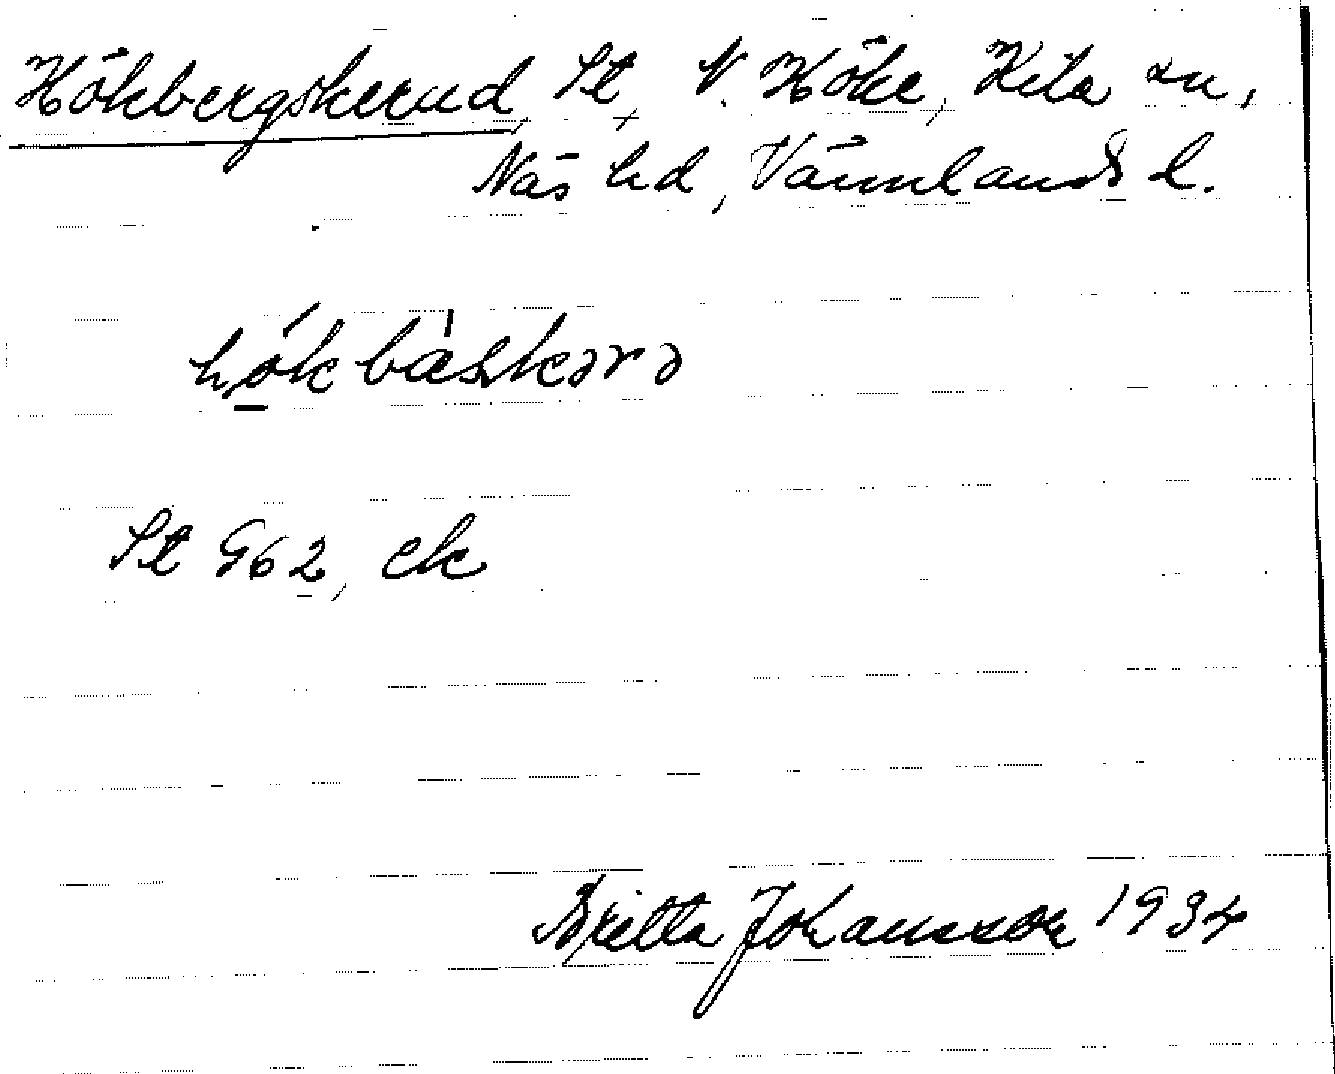 Hökbergskerud, St, N. Höke, Kila sn,
Näs hd, Värmlands l.
hö̱́kbàskərə
St G62, ek
Britta Johansson 1934